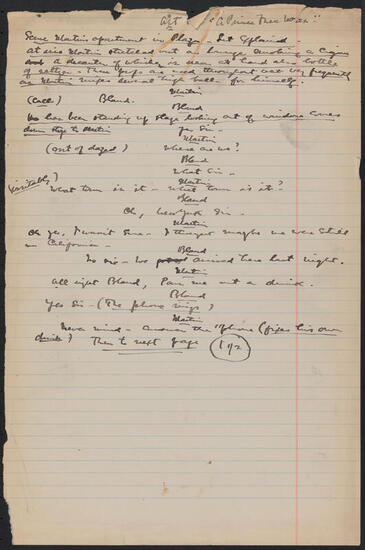 Act 1 "A Prince There Was"
Scene Martin's apartment in Plaza - Set Explained -
At rise Martin stretched out on lounge smoking a cigar
and a decanter of whiskey is seen at hand also bottle
of seltzer - These props are used throughout act very frequently
as Martin mixes several high balls for himself.
Martin
(Call) Bland.
Bland
Who has been standing up stage looking out of window comes
down stage to Martin
Yes Sir -
Martin
(out of daze) Where are we?
Bland
What Sir -
Martin
(irritably) What town is it - What town is it?
Bland
Oh, New York Sir -
Martin
Oh yes, I wasn't sure - I thought maybe we were still
in California -
Bland
No sir - We arrived here last night.
Martin
All right Bland, Pour me out a drink.
Bland
Yes Sir - (The phone rings)
Martin
Never mind - answer the 'phone (fixes his own
drink) Then to next page 1 of 2